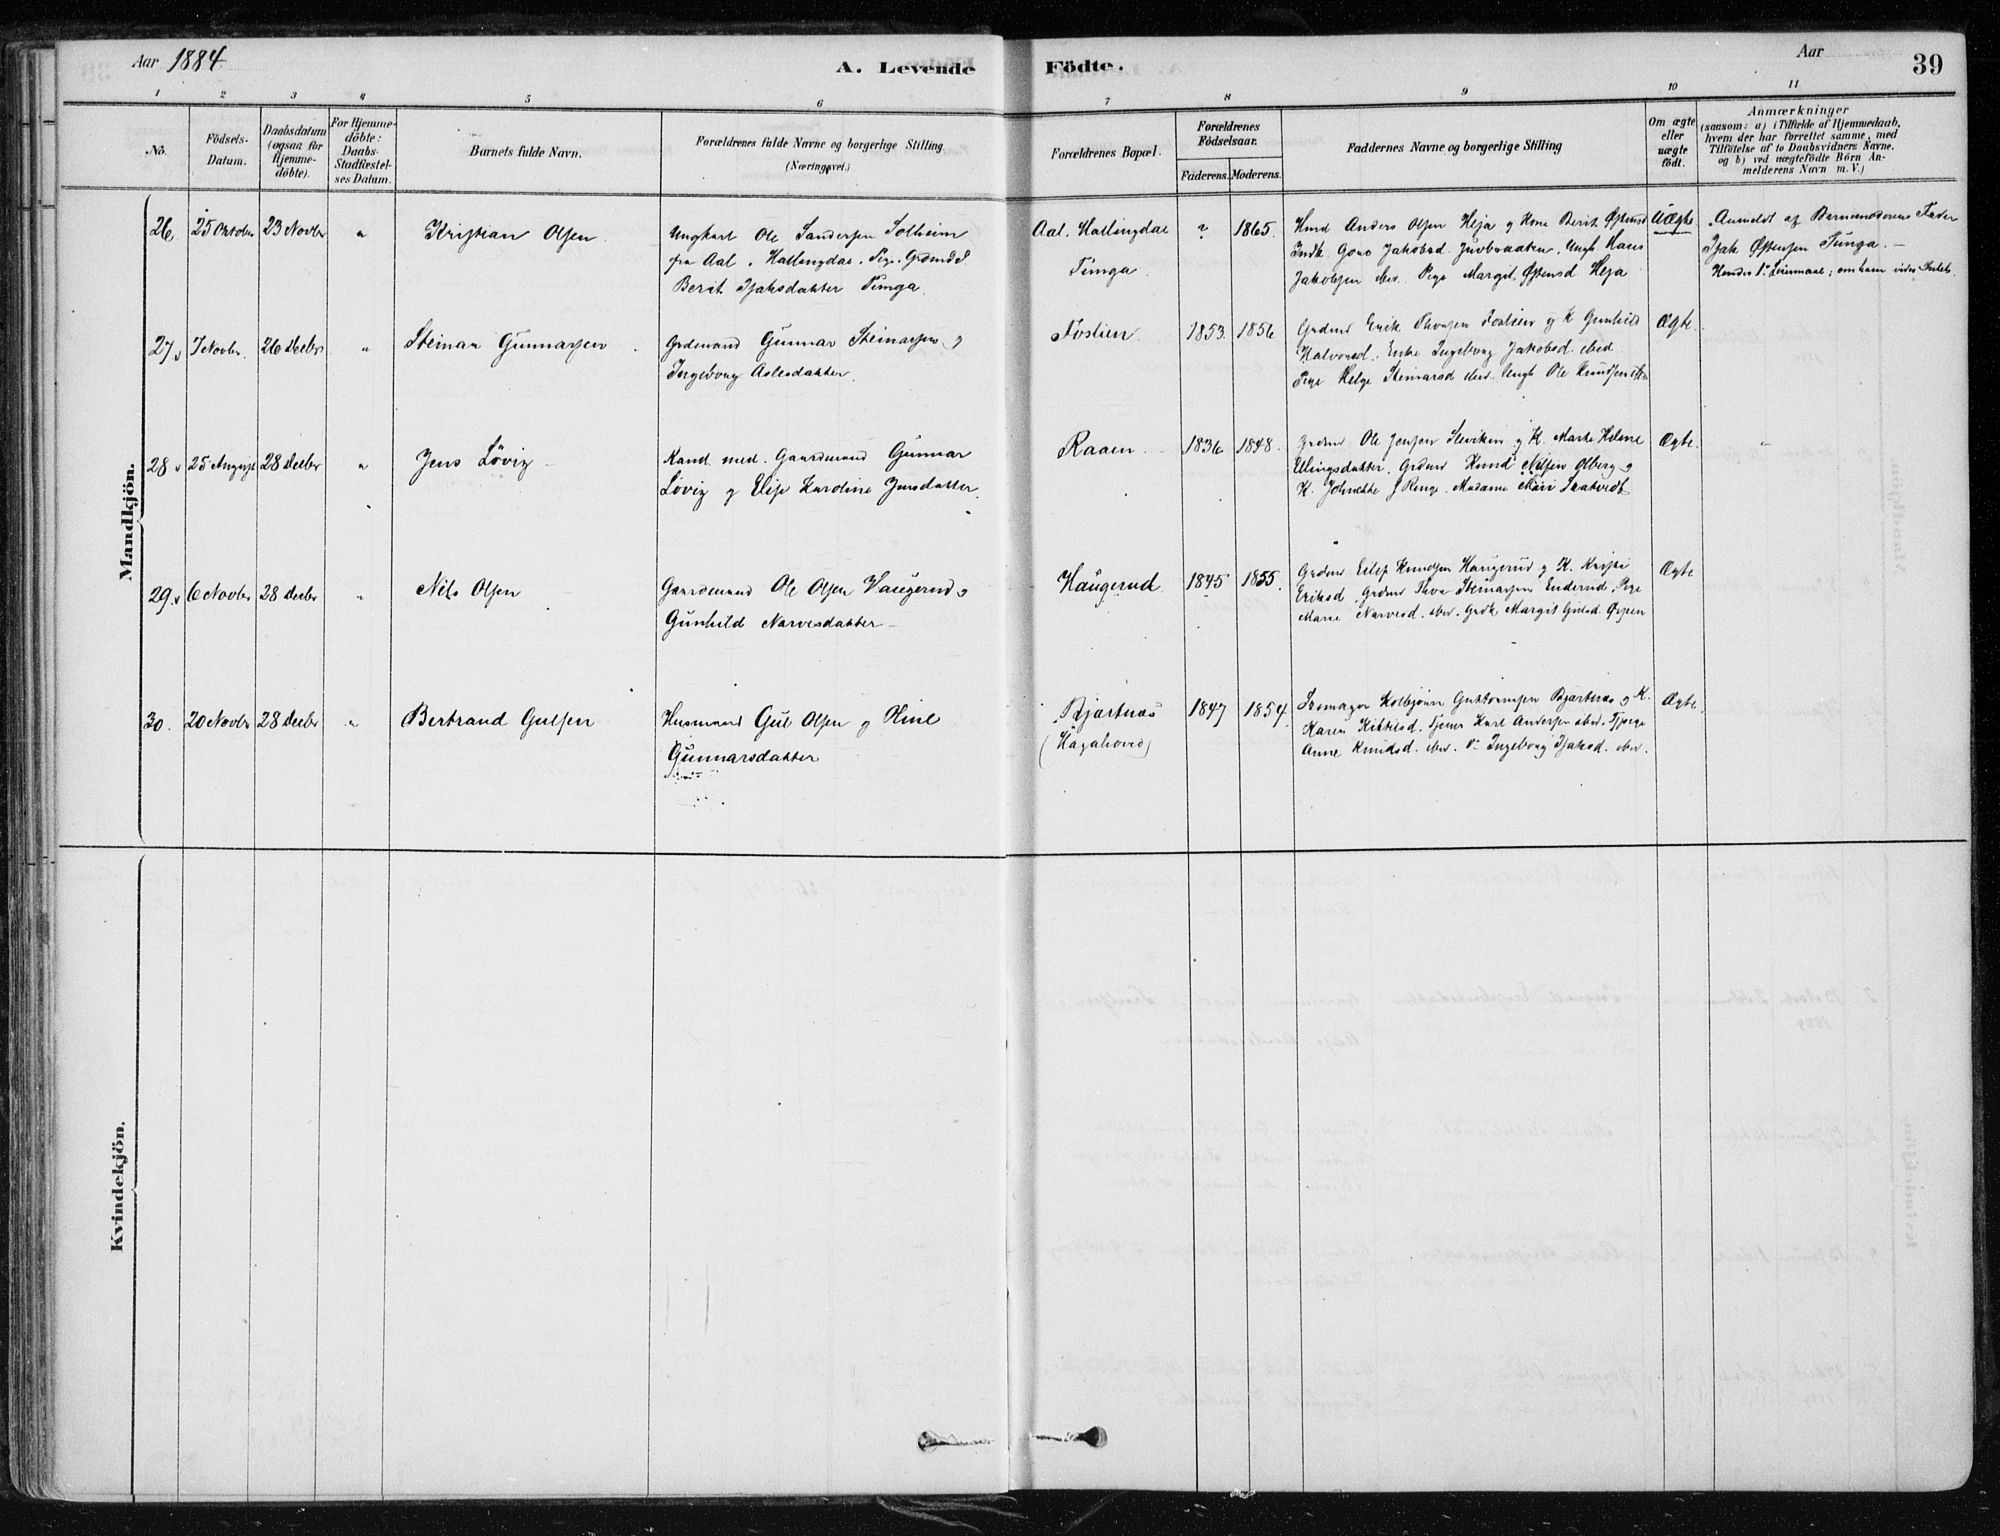 Aar 1884
A. Levende Födte.
Aar
39
1 2 3 4 5 6 7 8 9 10 11
No.
Födsels-Datum.
Daabsdatum (ogsaa for Hjemme-döbte).
For Hjemme-döbte: Daabs-Stadfæstel-ses Datum.
Barnets fulde Navn.
Forældrenes fulde Navne og borgerlige Stilling (Næringsvei.)
Forældrenes Bopæl.
Forældrenes Födselsaar.
Faderens. Moderens.
Faddernes Navne og borgerlige Stilling
Om ægte eller uægte födt.
Anmærkninger
(saasom: a) i Tilfælde af Hjemmedaab,
hvem der har forrettet samme, med
Tilföielse af to Daabsvidners Navne.
og b) ved uægtefödte Börn An-
melderens Navn m. V.)
Mandkjön.
26. 25 Oktober 23 Novbr " Kristian Olsen
Ungkarl Ole Sandersen Solheim
fra Aal, Hallingdal. Pige
Berit Isaksdatter Tunga.
Aal. Hallingdal
Tunga
? 1865.
Anders Olsen Heja og Kone Berit Østensd
Jakobsd. Ungk Hans
Jakobsen ibid. Pige Margit Østensd Heja
Uægte
Anmeldt af Barnemoderens Fader
Isak Østensen Tunga. —
Hendes 1ste Leiermaal;
27 7 Novbr. 26 Decbr " Steinar Gunnarsen
Grdmand Gunnar Steinarsen og
Ingeborg Aslesdatter.
Foslien
1853. 1856
Grdmd Erik Foslien og K Gunhild
Halvorsd. Enke Ingeborg Jakobsd. ibid
Pige Helge Steinarsd ibid. Ungk Ole Knudsen
Ægte
28 25 August 28 Decbr " Jens Løvig
Kand. med. Gaardmand Gunnar
Løvig og Elise Karoline Jensdatter.
Raaen
1836 1848.
Grdmd Ole Jensen og K. Marte Helene
Ellingsdatter. Grdmd Knud Nilsen Olberg og
K. Madame
Ægte "
29 6 Novbr 28 Decbr " Nils Olsen
Gaardmand Ole Olsen Haugerud og
Gunhild Narvesdatter
Haugerud
1845 1855.
Grdmd Eilif Knudsen Haugerud og K.
Eriksd. Grdmd Steinarsen Enderud. Pige
Marie Narvesd. ibid. Margit Gulsd.
Ægte
30. 20 Novbr 28 Decbr " Bertrand Gulsen
Husmand Gul Olsen og
Gunnarsdatter
Bjørtnæs
(Hagahoved)
1847 1854.
Skomager Kolbjörn Guttormsen Bjertnæs og K.
Karen Tjener Karl Andersen ibid.
Anne Knudsd. ibid. Ingeborg Isaksd. ibid.
Ægte
Kvindekjön.